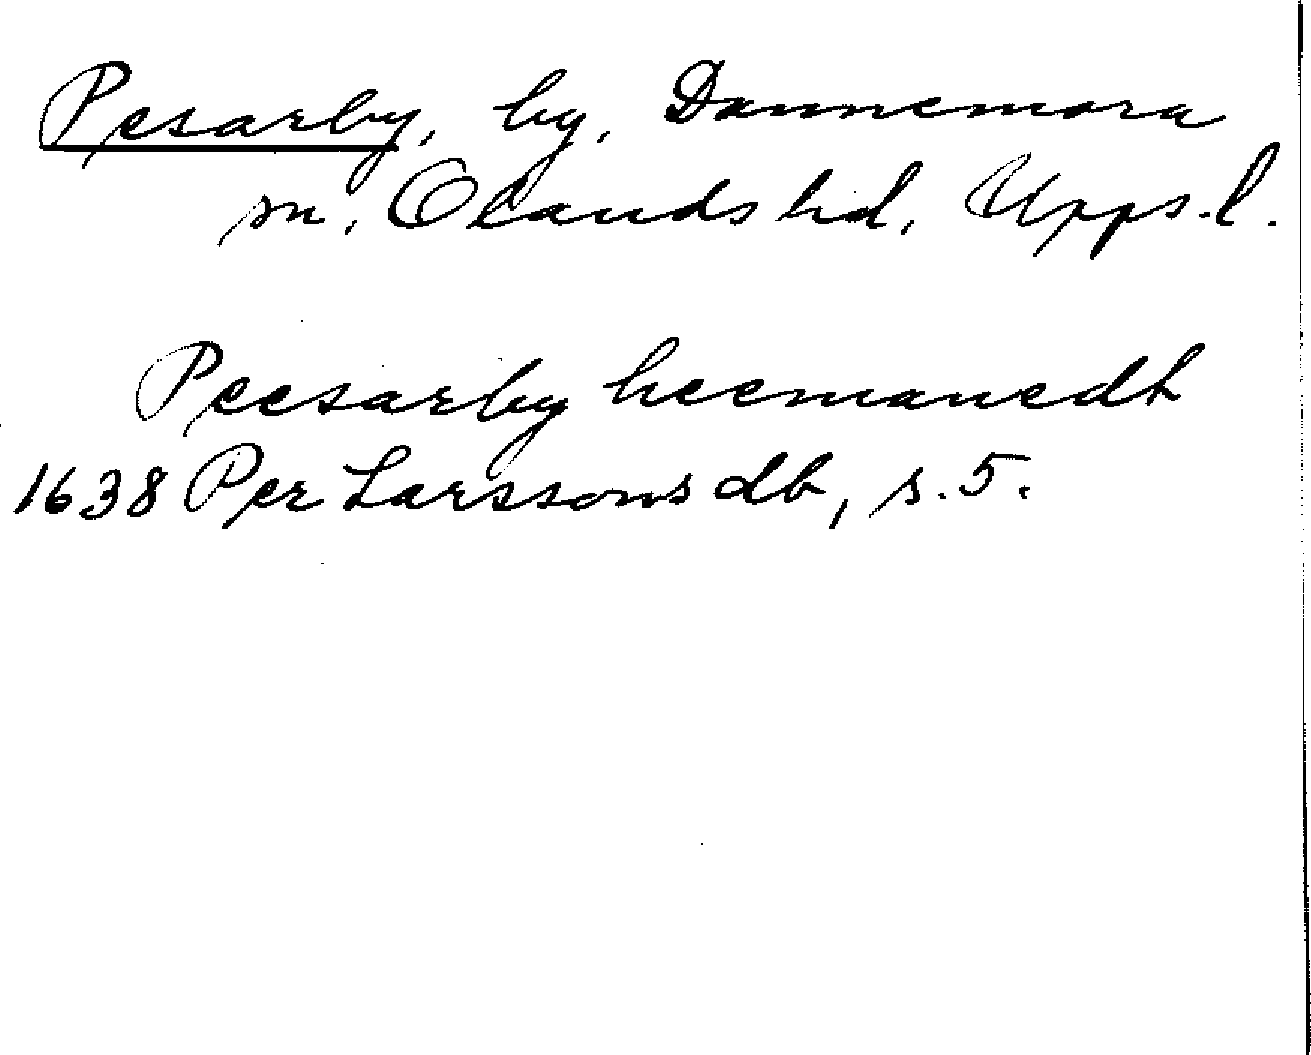 Pesarby, by, Dannemora
sn, Olands hd, Upps. l.
Peesarby heemanedh
1638 Per Larssons db, s. 5.